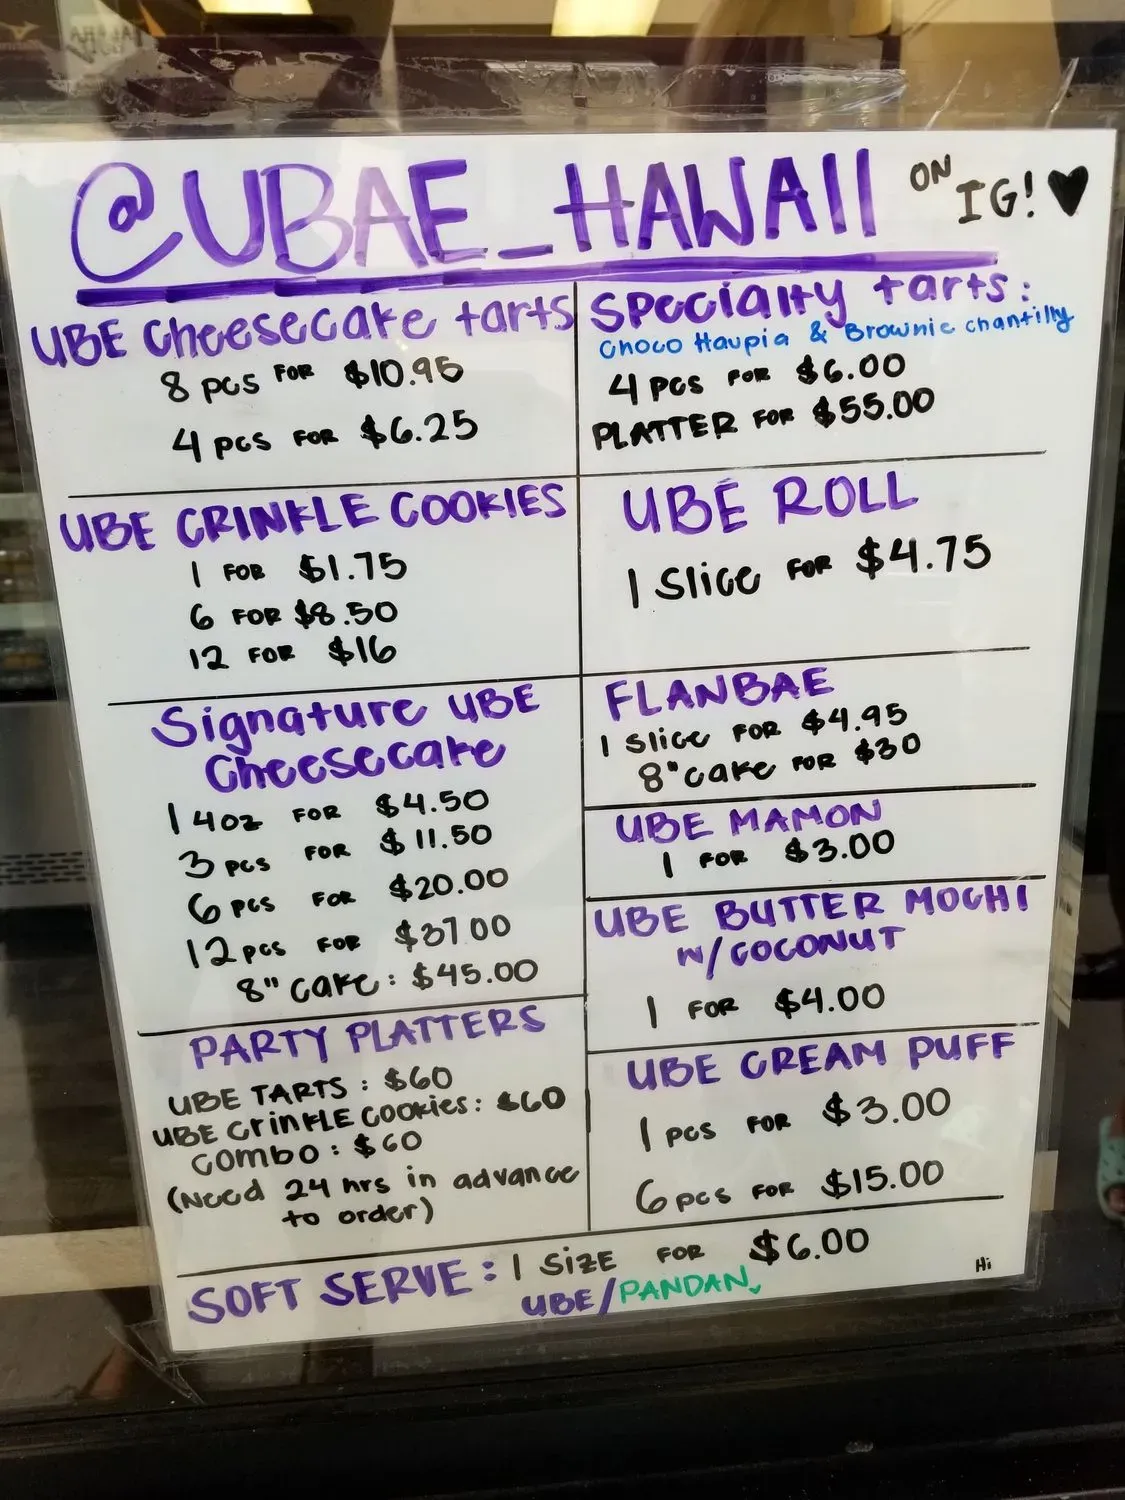 @UBAE_HAWAII ON IG! ♥
UBE Cheesecake tarts
8 pcs FOR $10.95
4 pcs FOR $6.25
Specialty tarts:
Choco Haupia & Brownie chantilly
4 pcs FOR $6.00
PLATTER FOR $55.00
UBE CRINKLE COOKIES
1 FOR $1.75
6 FOR $8.50
12 FOR $16
UBE ROLL
1 Slice FOR $4.75
Signature UBE
Cheesecake
1 4oz FOR $4.50
3 pcs FOR $11.50
6 pcs FOR $20.00
12 pcs FOR $37.00
8" cake: $45.00
FLANBAE
1 Slice FOR $4.95
8" cake FOR $30
UBE MAMON
1 FOR $3.00
UBE BUTTER MOCHI
W/COCONUT
1 FOR $4.00
PARTY PLATTERS
UBE TARTS: $60
UBE Crinkle Cookies: $60
Combo: $60
(Need 24 hrs in advance
to order)
UBE CREAM PUFF
1 pcs FOR $3.00
6 pcs FOR $15.00
SOFT SERVE: 1 SIZE FOR $6.00
UBE/PANDAN
Hi